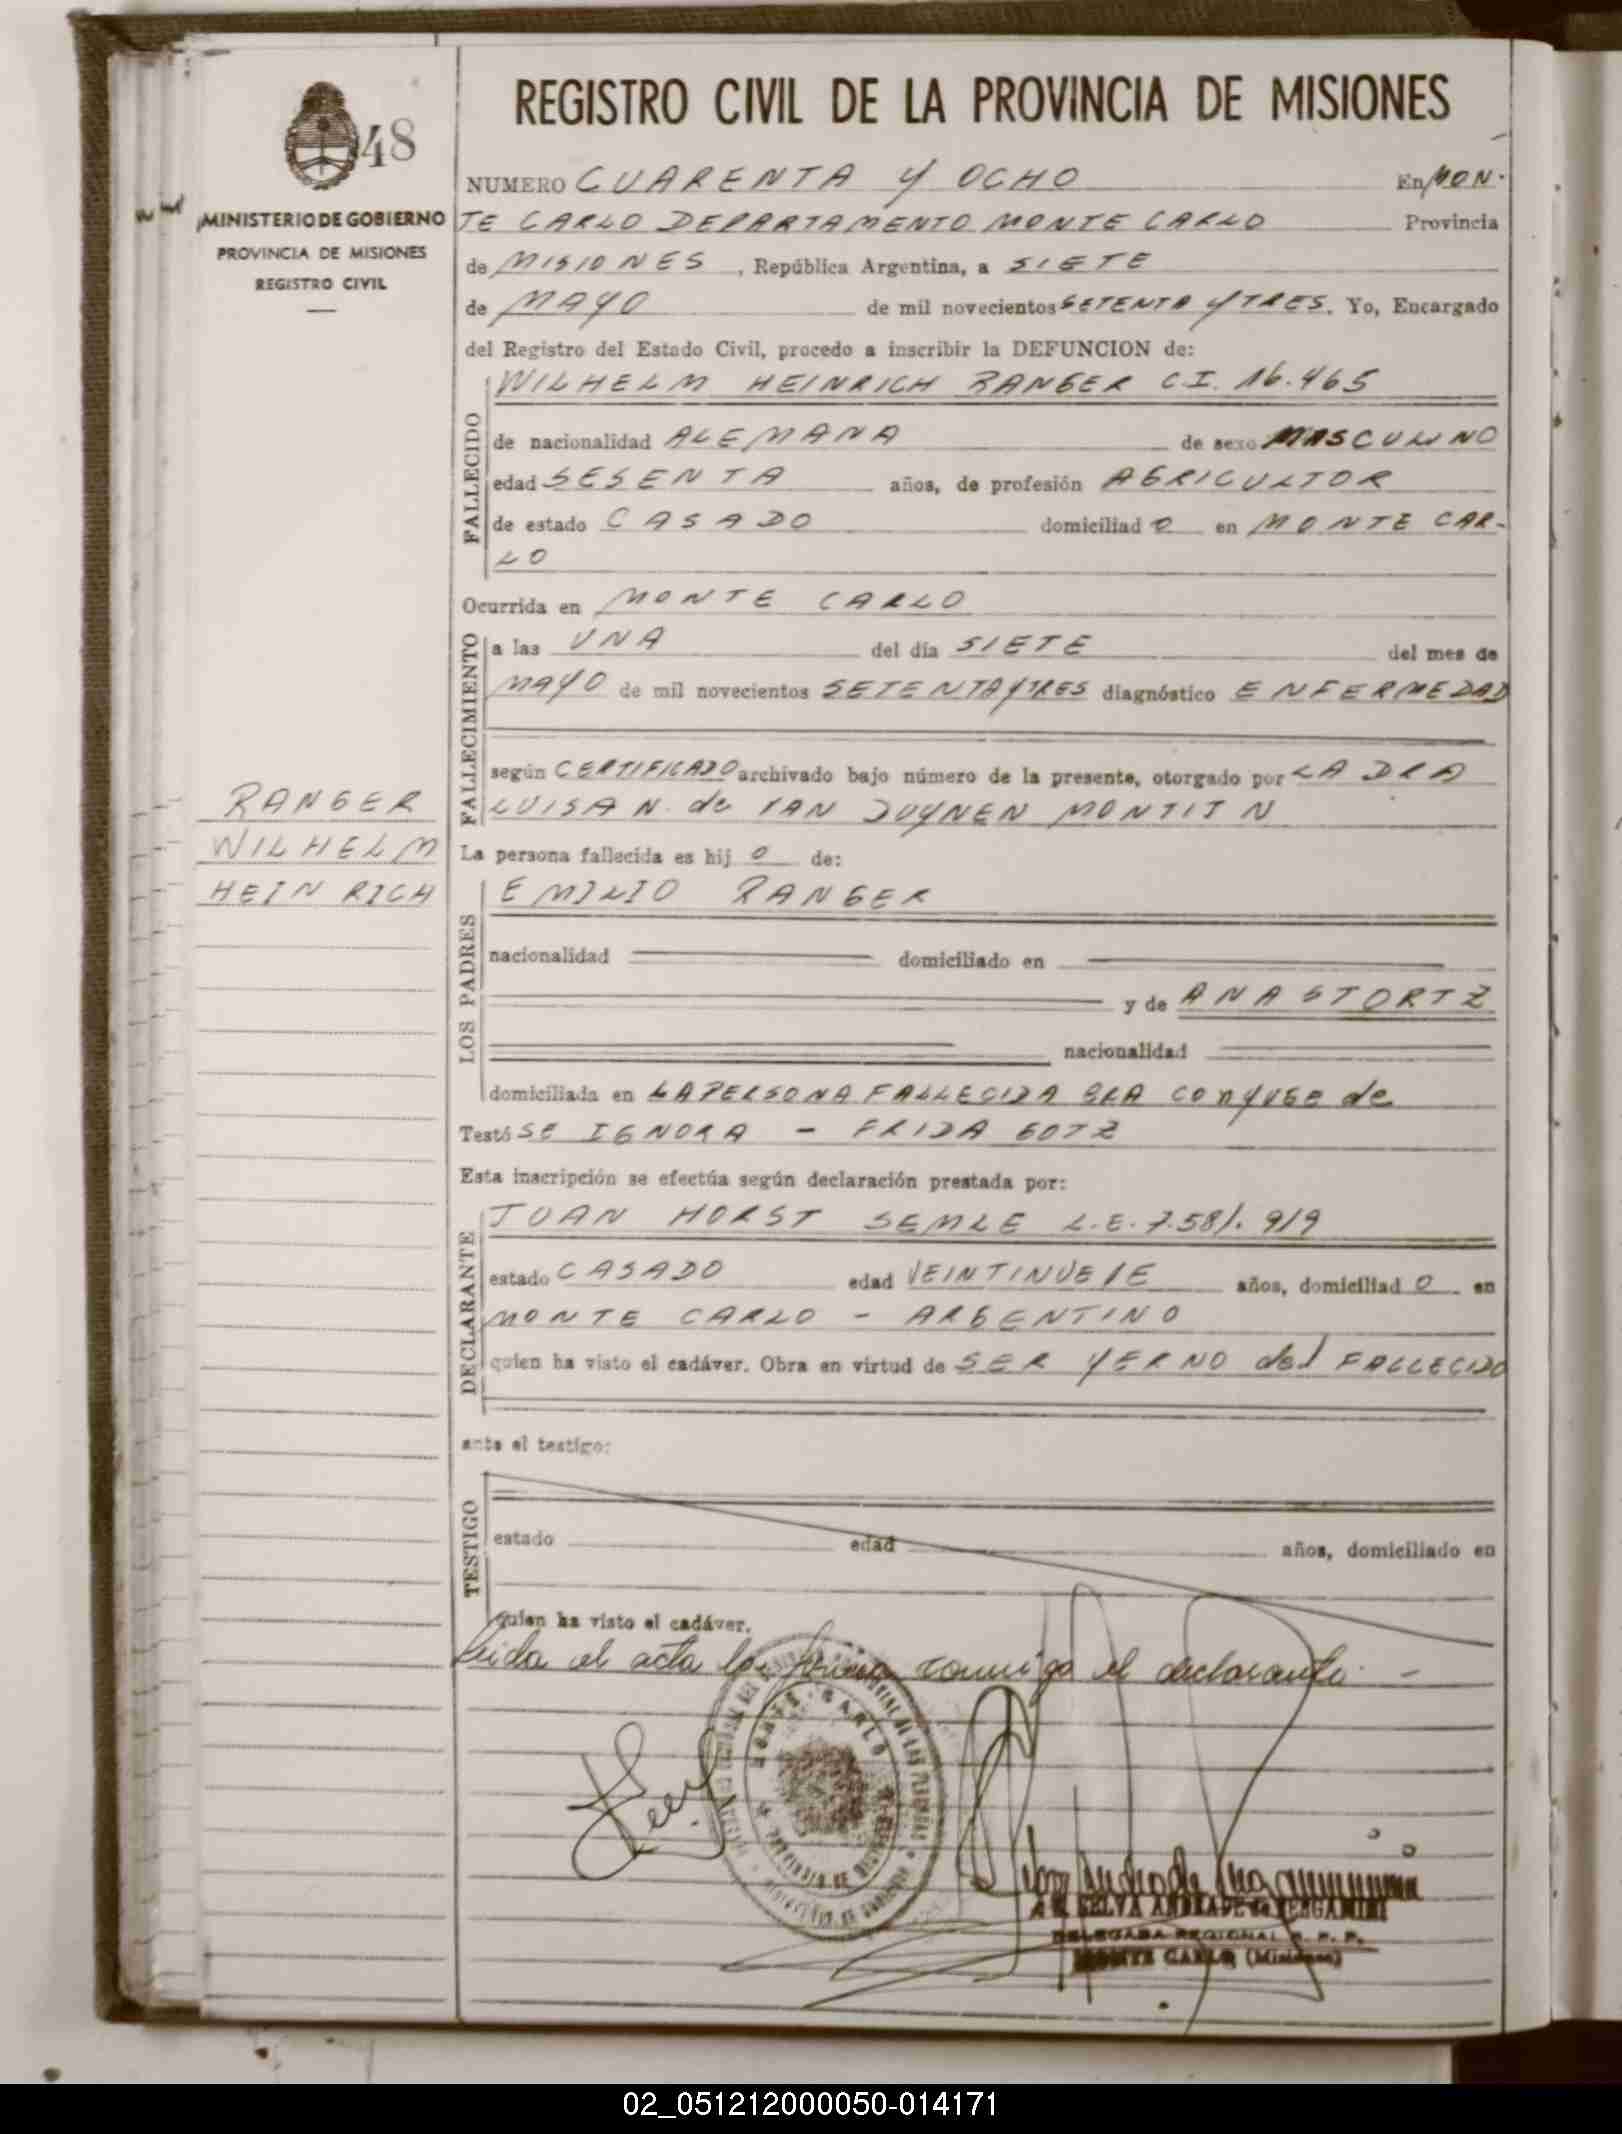 REGISTRO CIVIL DE LA PROVINCIA DE MISIONES
48
MINISTERIO DE GOBIERNO
PROVINCIA DE MISIONES
REGISTRO CIVIL
NUMERO CUARENTA Y OCHO En MON-
TE CARLO DEPARTAMENTO MONTE CARLO Provincia
de MISIONES, República Argentina, a SIETE
de MAYO de mil novecientos SETENTA Y TRES. Yo, Encargado
del Registro del Estado Civil, procedo a inscribir la DEFUNCION de:
FALLECIDO
WILHELM HEINRICH RANGER C.I. 16.465
de nacionalidad ALEMANA de sexo MASCULINO
edad SESENTA años, de profesión AGRICULTOR
de estado CASADO domiciliad O en MONTE CAR-
LO
Ocurrida en MONTE CARLO
FALLECIMIENTO
a las UNA del día SIETE del mes de
MAYO de mil novecientos SETENTA Y TRES diagnóstico ENFERMEDAD
según CERTIFICADO archivado bajo número de la presente, otorgado por LA DRA
LUISA N. de VAN DUYNEN MONTIIN
RANGER
WILHELM
HEINRICH
La persona fallecida es hij O de:
LOS PADRES
EMILIO RANGER
nacionalidad domiciliado en
y de ANA STORTZ
nacionalidad
domiciliada en LA PERSONA FALLECIDA ERA conyuge de
Testó SE IGNORA - FRIDA GOTZ
Esta inscripción se efectúa según declaración prestada por:
DECLARANTE
JUAN HORST SEMLE L.E. 7.581.919
estado CASADO edad VEINTINUEVE años, domiciliad O en
MONTE CARLO - ARGENTINO
quien ha visto el cadáver. Obra en virtud de SER YERNO del FALLECIDO
ante el testigo:
TESTIGO
estado edad años, domiciliado en
quien ha visto el cadáver.
Leida el acta la firma conmigo el declarante. -
MONTE CARLO
DELEGADA REGIONAL
MONTE CARLO (Misiones)
02_051212000050-014171